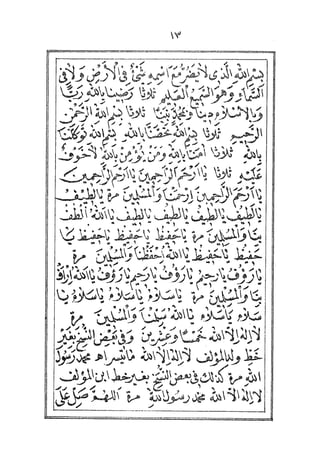 ١٣
بسم الله الذي لا يضر مع اسمه شئ في الأرض ولا في
السماء وهو السميع العليم ثلاثا رضينا بالله ربا
وبالإسلام دينا وبمحمد نبيا ثلاثا بسم الله الرحمن
الرحيم ثلاثا بسم الله تحصنا بالله بسم الله توكلنا
بالله ثلاثا آمنا بالله ومن يؤمن بالله لا خوف
عليه ثلاثا يا ارحم الراحمين يا ارحم الراحمين
يا ارحم الراحمين ارحمنا والمسلمين مرة يا لطيف
يا لطيف يا لطيف يا لطيف يا لطيف يا الله الطف
بنا والمسلمين مرة يا حفيظ يا حفيظ يا حفيظ يا
حفيظ يا حفيظ يا الله احفظنا والمسلمين مرة
يا رؤف يا رحيم يا رؤف يا رحيم يا رؤف يا الله ارأف
بنا والمسلمين مرة يا سلام يا سلام يا سلام يا
سلام يا سلام يا الله والمسلمين مرة
لا إله إلا الله خمسا وعشرين وفي بعض النسخ بغير
خط ولد المؤلف لا إله إلا الله ما تيسر اه محمد رسول
الله مرة كذلك في بعض النسخ بغير خط ابن المؤلف
لا إله إلا الله محمد رسول الله مرة اللهم صل على